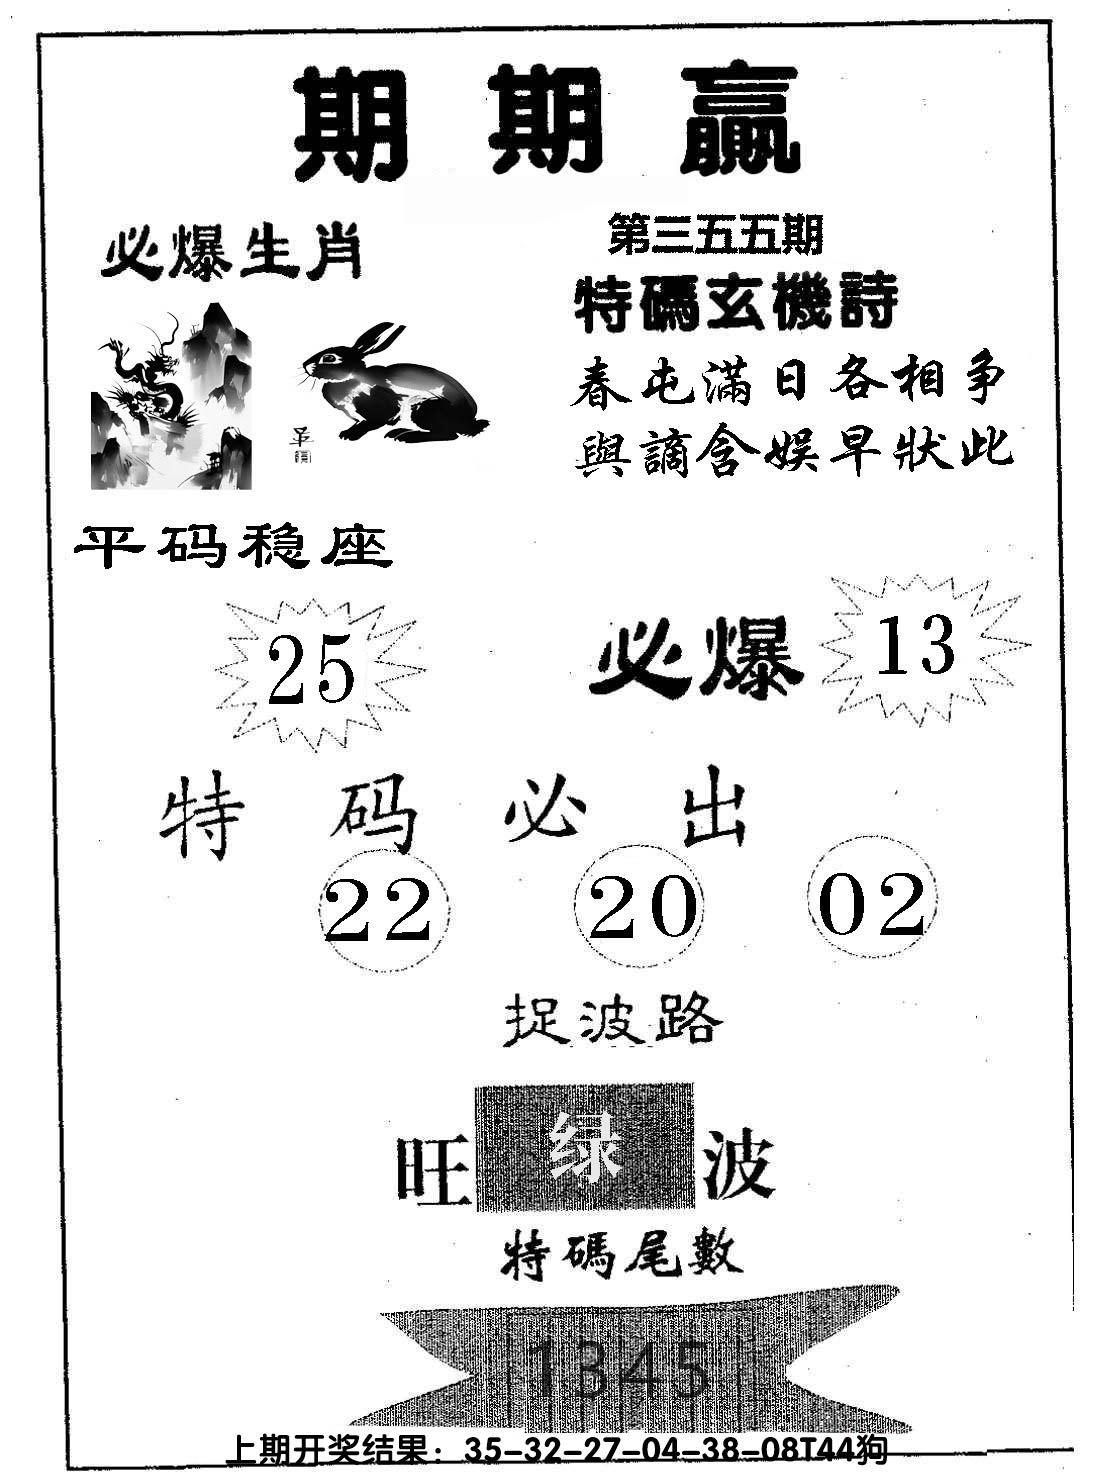 期期赢
第三五五期
必爆生肖
特碼玄機詩
春屯滿日各相争
與謫含娱早狀此
平码稳座
25
必爆 13
特码必出
22 20 02
捉波路
旺 绿 波
特碼尾數
1345
上期开奖结果：35-32-27-04-38-08T44狗